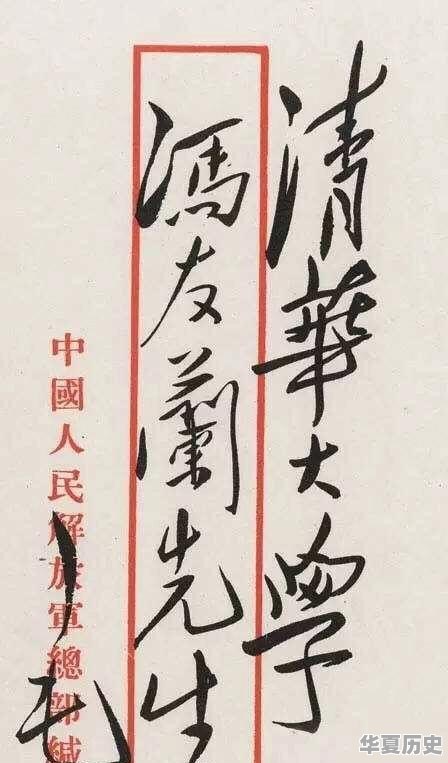 清華大學
馮友蘭先生
中國人民解放軍總部緘
毛
华夏历史